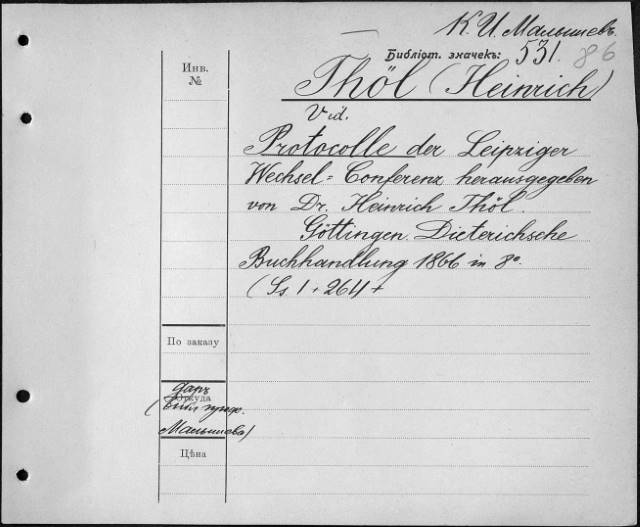 К. И. Малышевъ.
Библіот. значекъ: 531. 86
Инв.
№
Thöl (Heinrich)
Vid.
Protocolle der Leipziger
Wechsel=Conferenz herausgegeben
von Dr. Heinrich Thöl.
Göttingen. Dieterichsche
Buchhandlung 1866 in 8°.
(Ss 1 + 264 +
По заказу
Даръ
Откуда
(библ. проф.
Малышева)
Цѣна